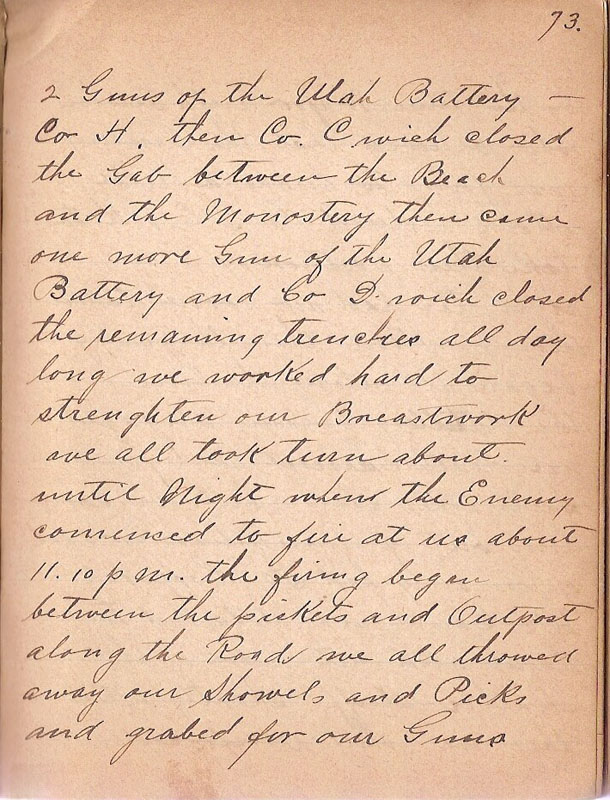 73.
2 Guns of the Utah Battery —
Co H. then Co. C. wich closed
the Gab between the Beach
and the Monostery then came
one more Gun of the Utah
Battery and Co D. wich closed
the remaining trenches all day
long we worked hard to
strenghten our Breastwork
we all took turn about.
until Night when the Enemy
comenced to fire at us about
11.10 p m. the firing began
between the pickets and Outpost
along the Road, we all throwed
away our Showels and Picks
and grabed for our Guns